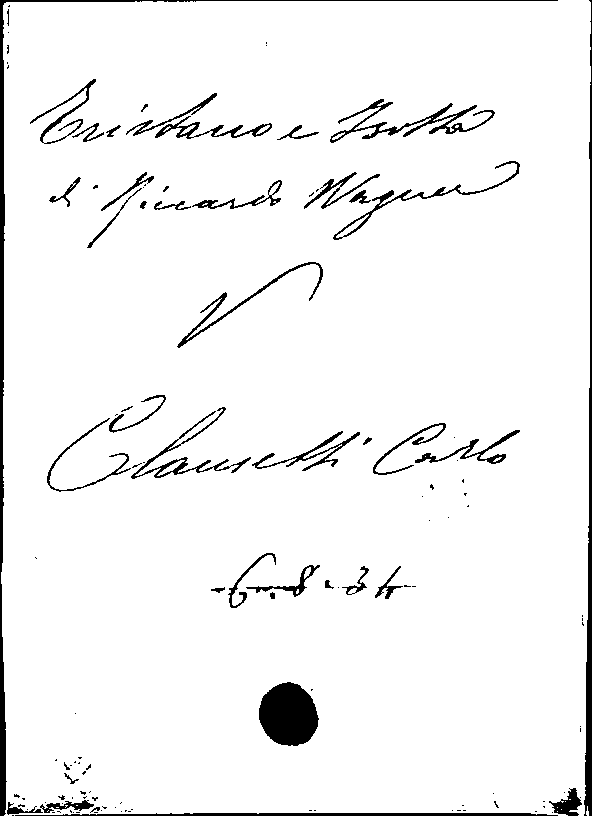 Tristano e Isotta
di Riccardo Wagner
V
Clausetti Carlo
6.8.34